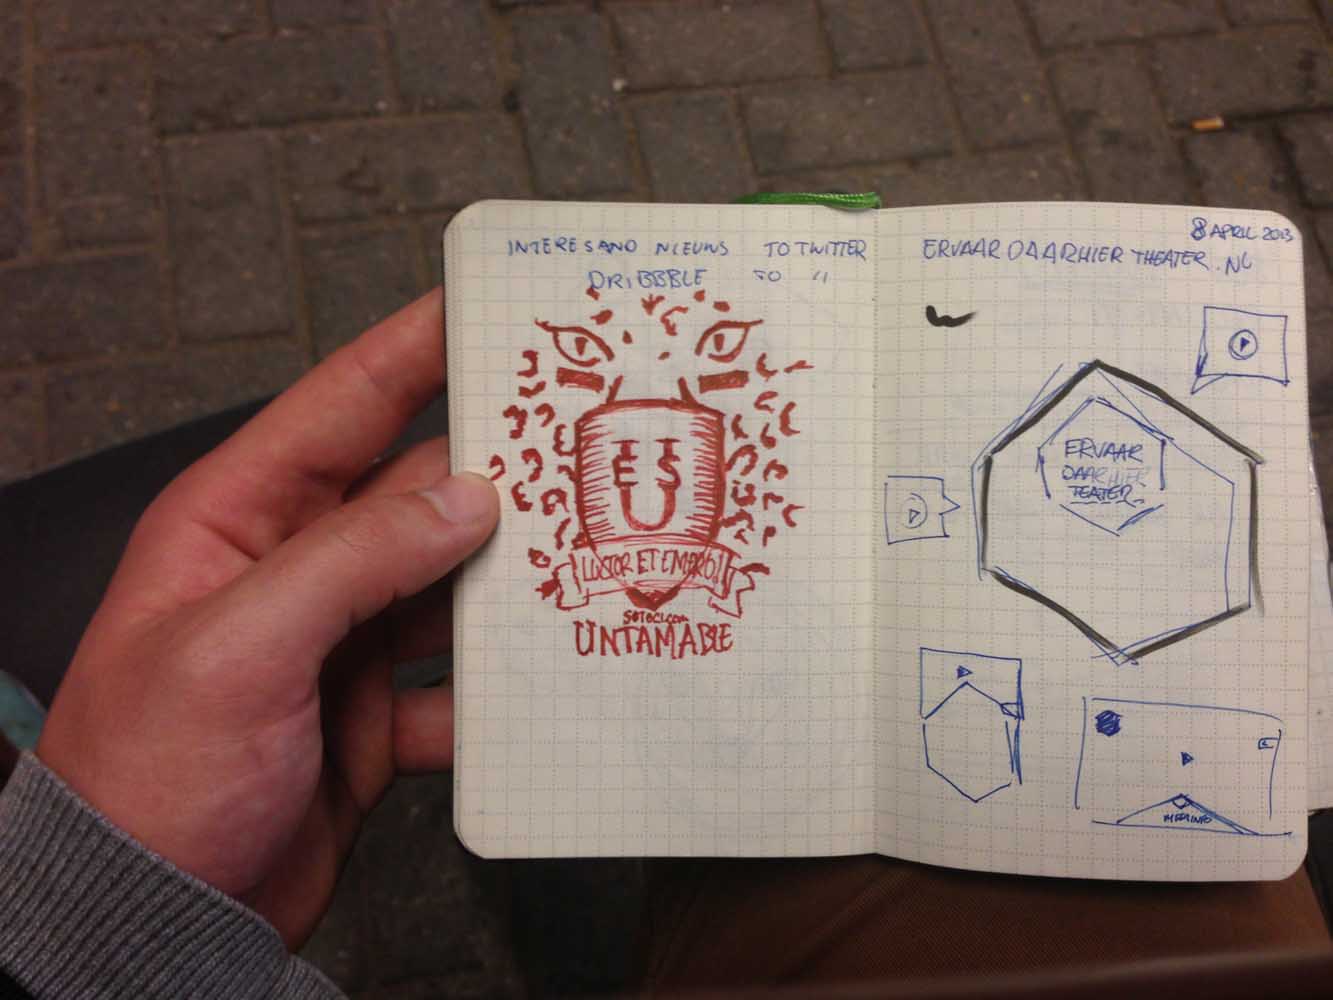 INTERESAND NIEUWS TO TWITTER
DRIBBBLE TO "
U
ES
LUCTOR ET EMERGO!
UNTAMABLE
8 APRIL 2013
ERVAARDAARHIERTHEATER.NL
ERVAAR
DAARHIER
TEATER
MEER INFO